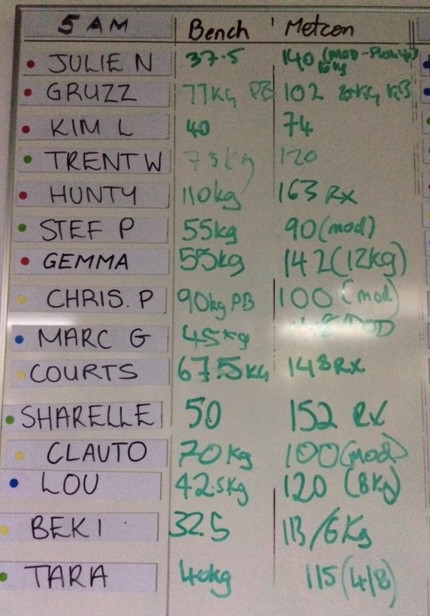 5 AM Bench Metcon
JULIE N 37.5 140 (MOD-Push up)
GRUZZ 77kg PB 102 KB
KIM L 40 74
TRENT W 75kg 120
HUNTY 110kg 163 RX
STEF P 55kg 90 (mod)
GEMMA 55kg 142 (12kg)
CHRIS. P 90kg PB 100 (mod)
MARC G 45kg
COURTS 67.5kg 148 RX
SHARELLE 50 152 RX
CLAUTO 70kg 100 (mod)
LOU 42.5kg 120 (8kg)
BEKI 32.5 113/6kg
TARA 40kg 115 (4/8)